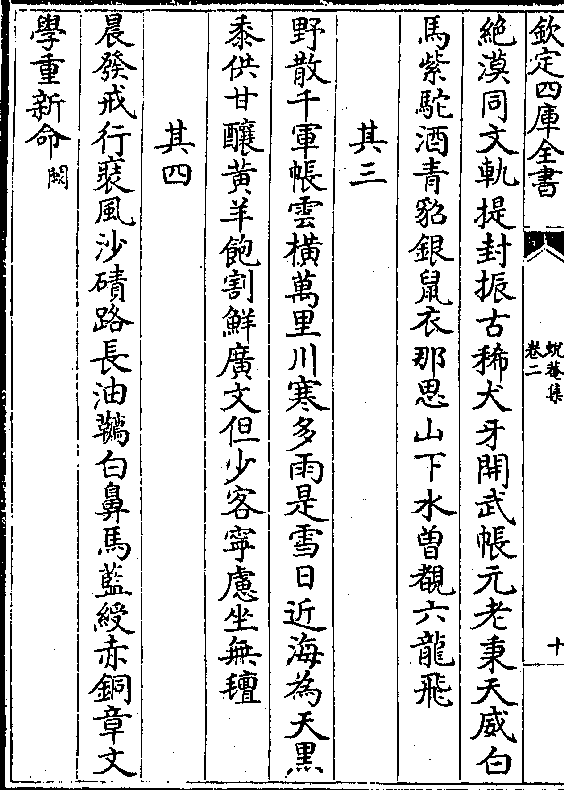 欽定四庫全書
蛻菴集
卷二
十
絶漠同文軌提封振古稀犬牙開武帳元老秉天威白
馬紫駝酒青貂銀鼠衣那思山下水曽覩六龍飛
其三
野散千軍帳雲横萬里川寒多雨是雪日近海為天黑
黍供甘釀黄羊飽割鮮廣文但少客寜慮坐無氊
其四
晨發戒行裘風沙磧路長油韉白鼻馬藍綬赤銅章文
學重新命闕